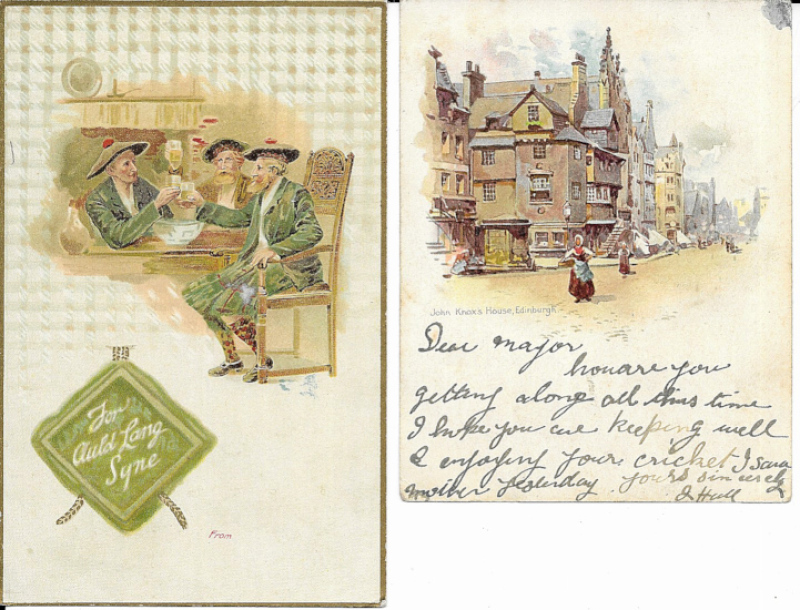 For
Auld Lang
Syne
From
John Knox's House, Edinburgh
Dear major
how are you
getting along all this time
I hope you are keeping well
& enjoying your cricket I saw
mother yesterday. yours sincerely
J Hull